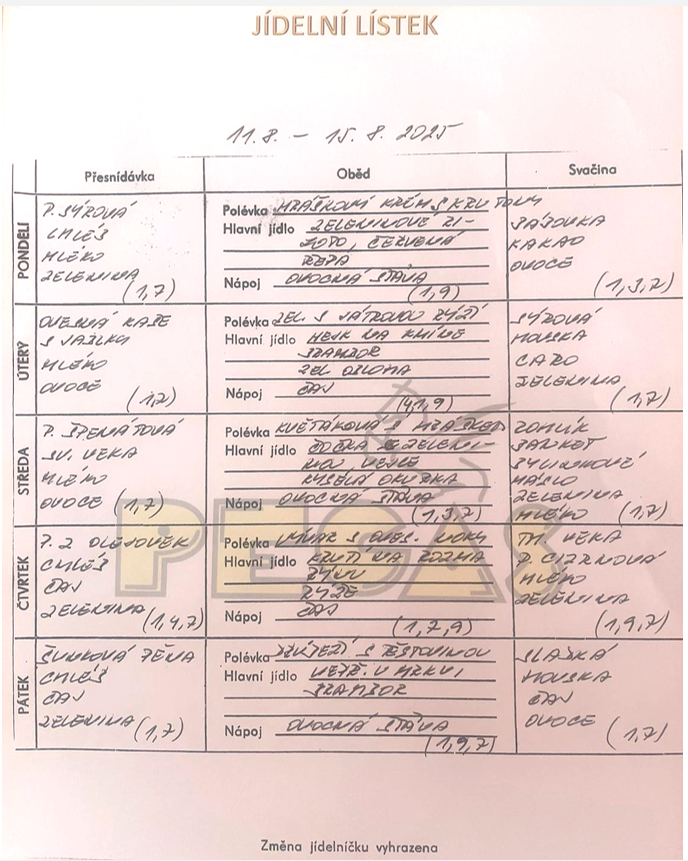 JÍDELNÍ LÍSTEK
11.8. – 15.8. 2025
Přesnídávka Oběd Svačina
PONDĚLÍ
P. SÝROVÁ
CHLÉB
MLÉKO
ZELENINA
(1,7)
Polévka HRÁŠKOVÝ KRÉM S KRUTONY
Hlavní jídlo ZELENINOVÉ RI-
ZOTO, ČERVENÁ
ŘEPA
Nápoj OVOCNÁ ŠŤÁVA
(1,9)
KAKAO
OVOCE
(1,3,7)
ÚTERÝ
OVESNÁ KAŠE
S JABLKY
MLÉKO
OVOCE
(1,7)
Polévka ZEL. S JÁTROVOU RÝŽÍ
Hlavní jídlo HEJK NA KMÍNĚ
BRAMBOR
ZEL OBLOHA
Nápoj ČAJ
(4,1,9)
SÝROVÁ
HOUSKA
CARO
ZELENINA
(1,7)
STŘEDA
P. ŠPENÁTOVÁ
SV. VEKA
MLÉKO
OVOCE (1,7)
Polévka KVĚTÁKOVÁ S HRÁŠKEM
Hlavní jídlo ČOČKA SE ZELENI-
NOU VEJCE
KYSELÁ OKURKA
Nápoj OVOCNÁ ŠŤÁVA
(1,3,7)
ROHLÍK
BYLINKOVÉ
MÁSLO
ZELENINA
MLÉKO (1,7)
ČTVRTEK
P. Z OLEJOVEK
CHLÉB
ČAJ
ZELENINA (1,4,7)
Polévka VÝVAR S OVES. VLOČKY
Hlavní jídlo KRŮTÍ NA
RÝŽE
Nápoj ČAJ
(1,7,9)
TM. VEKA
P. CIZRNOVÁ
MLÉKO
ZELENINA
(1,9,7)
PÁTEK
ŠUNKOVÁ PĚNA
CHLÉB
ČAJ
ZELENINA (1,7)
Polévka DRŮBEŽÍ S TĚSTOVINOU
Hlavní jídlo VEPŘ. V MRKVI
BRAMBOR
Nápoj OVOCNÁ ŠŤÁVA
(1,9,7)
SLADKÁ
HOUSKA
ČAJ
OVOCE
(1,7)
PEGAS
Změna jídelníčku vyhrazena